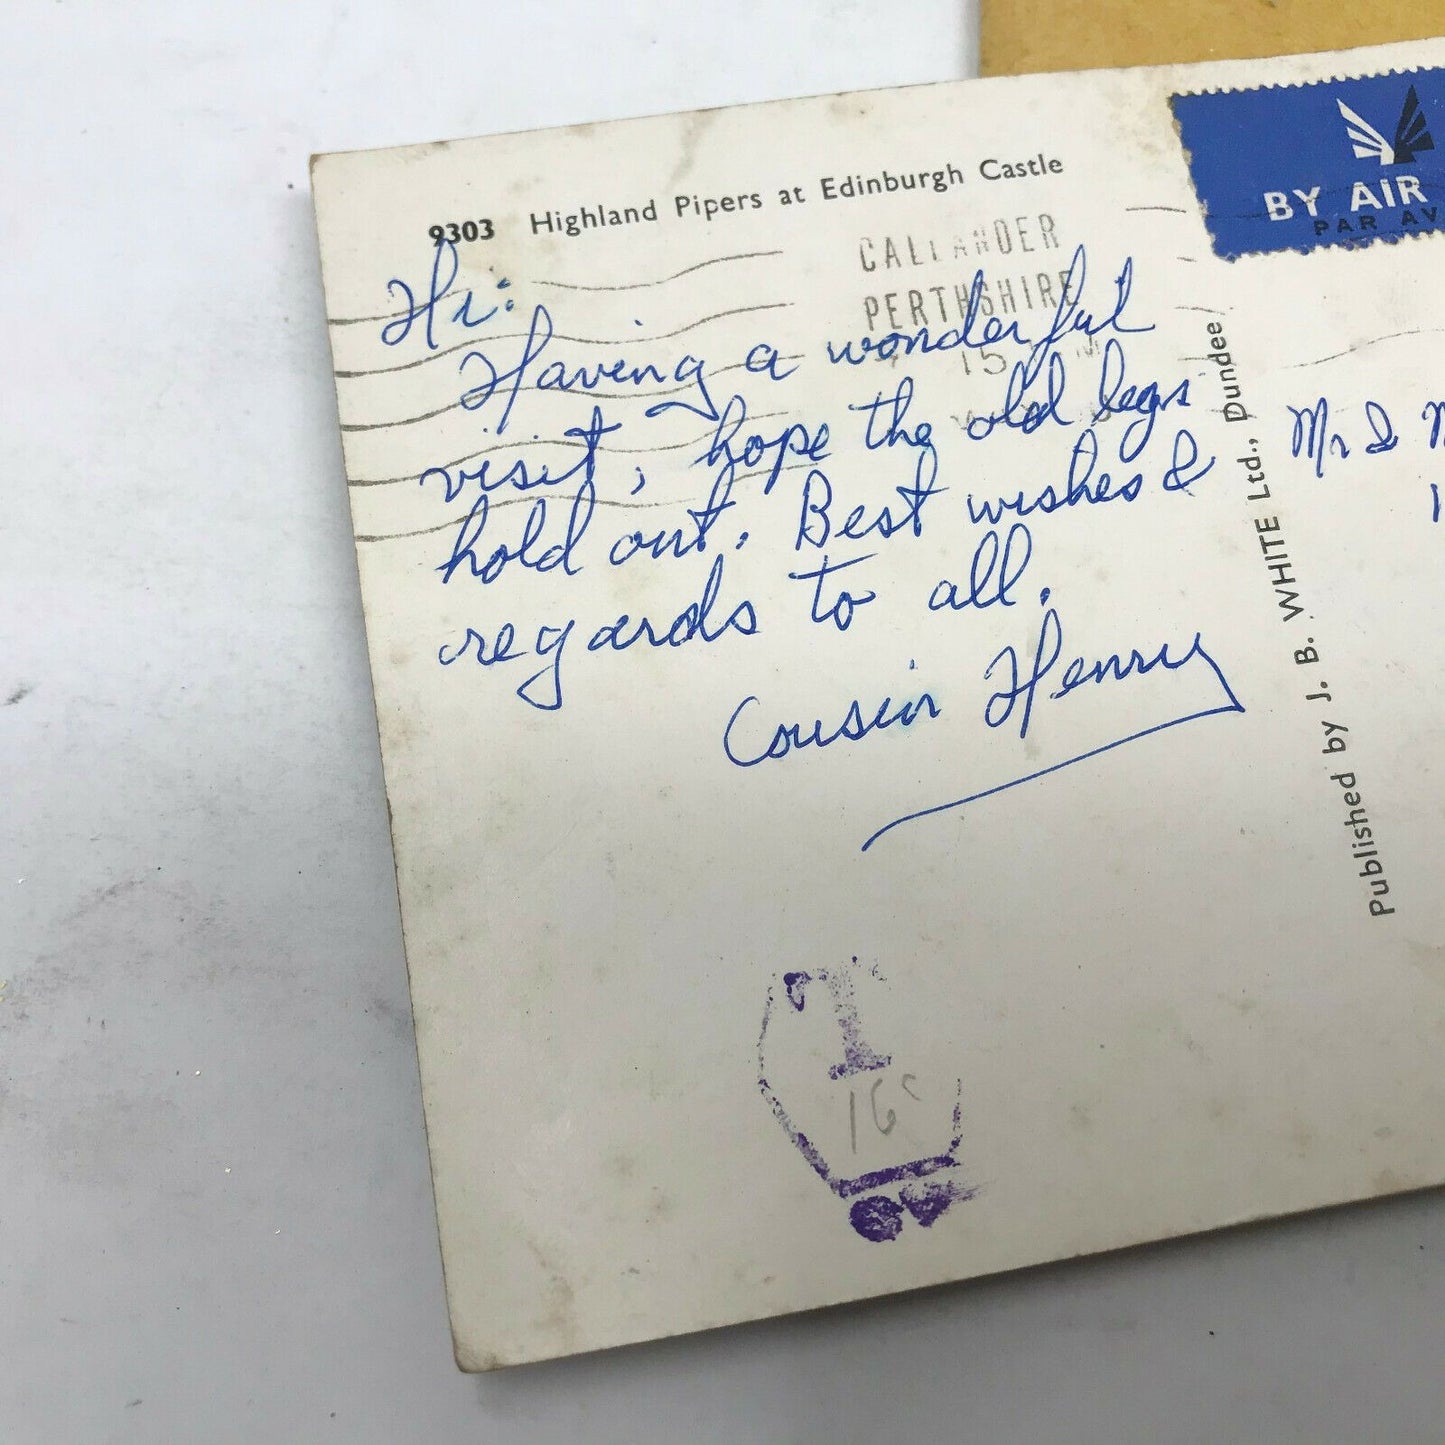 9303 Highland Pipers at Edinburgh Castle
BY AIR
PAR AV
CALLANDER
PERTHSHIRE
15
Hi:
Having a wonderful
visit, hope the old legs
hold out. Best wishes &
regards to all.
Cousin Henry
Published by J. B. WHITE Ltd., Dundee
Mr &
T
16c